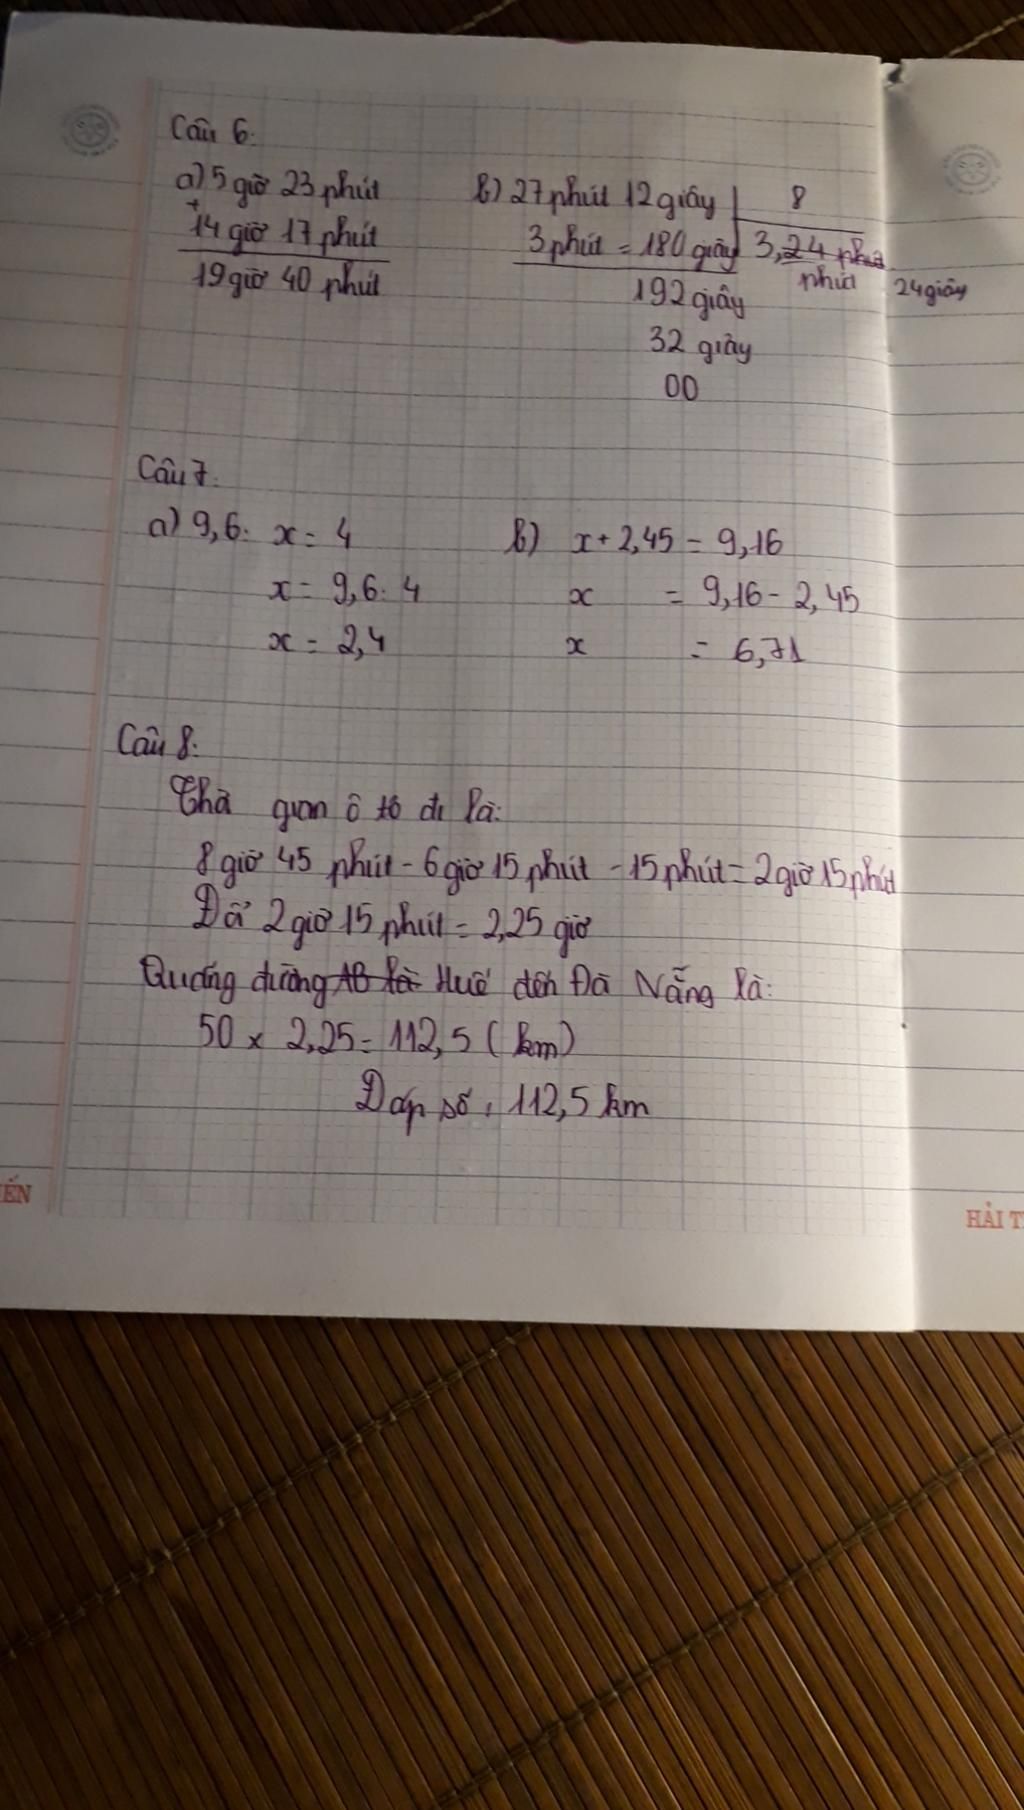 Câu 6:
a) 5 giờ 23 phút
+
14 giờ 17 phút
19 giờ 40 phút
b) 27 phút 12 giây 8
3 phút = 180 giây 3, 24 phút
phút 24 giây
192 giây
32 giây
00
Câu 7:
a) 9,6 : x = 4
x = 9,6 : 4
x = 2,4
b) x + 2,45 = 9,16
x = 9,16 - 2,45
x = 6,71
Câu 8:
gian ô tô đi là:
8 giờ 45 phút - 6 giờ 15 phút - 15 phút = 2 giờ 15 phút
2 giờ 15 phút = 2,25 giờ
Quãng đường AB là Huế đến Đà Nẵng là:
50 x 2,25 = 112,5 (km)
Đáp số : 112,5 km
ẾN
HẢI T